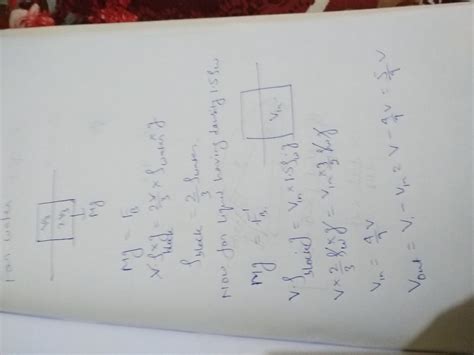 For water
V/3
2V/3
Mg
Mg = FB
V ρblock × g = 2V/3 × ρwater × g
ρblock = 2/3 ρwater
Now for liquid having density 1.5 ρw
Mg = FB'
Vin
V ρblock g = Vin × 1.5 ρw g
V × 2/3 ρw g = Vin × 3/2 ρw g
Vin = 4/9 V
Vout = V - Vin = V - 4/9 V = 5/9 V